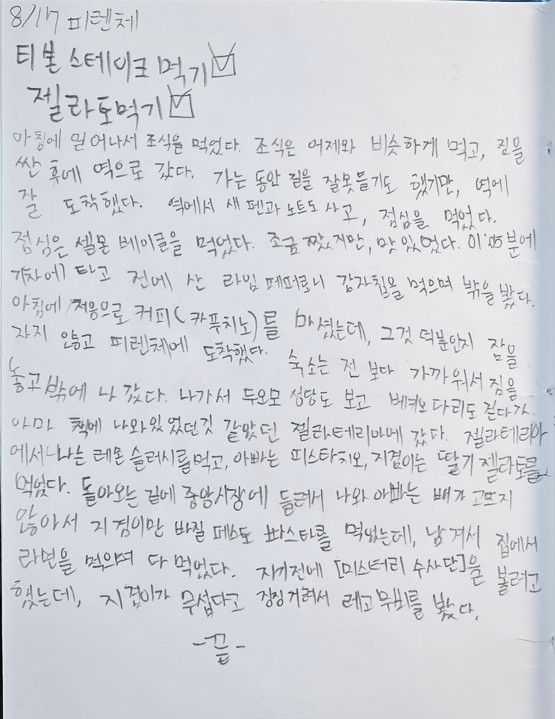 8/17 피렌체
티본 스테이크 먹기 ☑
젤라또 먹기 ☑
아침에 일어나서 조식을 먹었다. 조식은 어제와 비슷하게 먹고, 짐을
싼 후에 역으로 갔다. 가는 동안 길을 잘못들기도 했지만, 역에
잘 도착했다. 역에서 새 펜과 노트도 사고, 점심을 먹었다.
점심은 셀몬 베이글을 먹었다. 조금 짰지만, 맛있었다. 01:05분에
기차에 타고 전에 산 라임 페퍼로니 감자칩을 먹으며 밖을 봤다.
아침에 처음으로 커피(카푸치노)를 마셨는데, 그것 덕분인지 잠을
자지 않고 피렌체에 도착했다. 숙소는 전 보다 가까워서 짐을
놓고 밖에 나갔다. 나가서 두오모 성당도 보고 베키오 다리도 걷다가
아마 책에 나와있었던것 같았던 젤라테리아에 갔다. 젤라테리아
에서 나는 레몬 슬러시를 먹고, 아빠는 피스타치오, 지겸이는 딸기 젤라또를
먹었다. 돌아오는 길에 중앙시장에 들러서 나와 아빠는 배가 고프지
않아서 지겸이만 바질 페스토 파스타를 먹었는데, 남겨서 집에서
라면을 먹으며 다 먹었다. 자기전에 [미스터리 수사단]을 볼려고
했는데, 지겸이가 무섭다고 징징거려서 레고 무비를 봤다.
-끝-